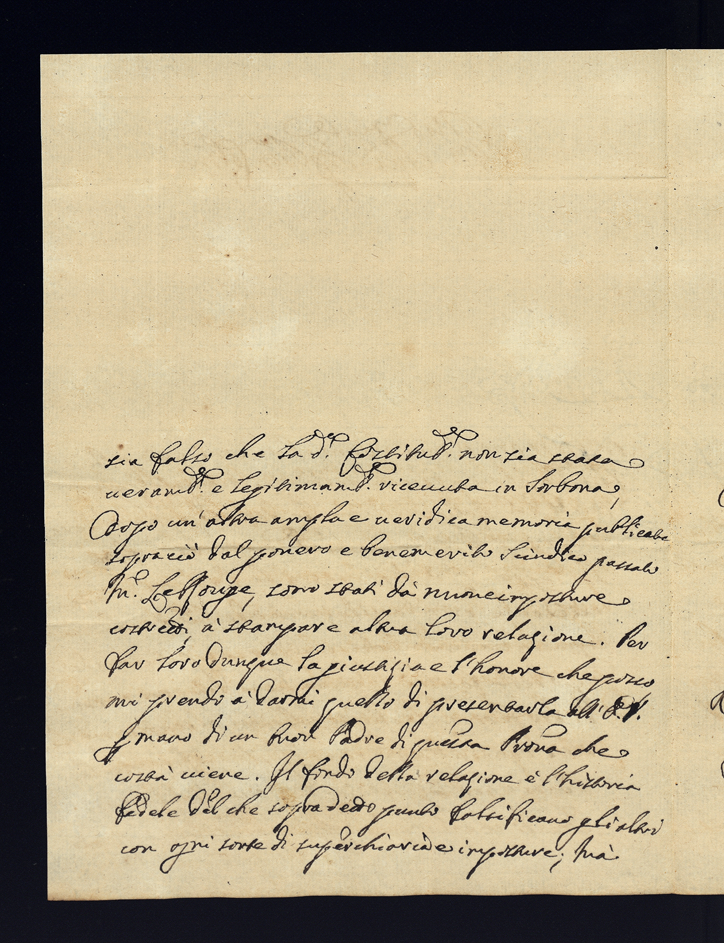 sia falso che la d.ª Costitut.ne non sia stata
veram.te e legitimam.te ricevuta in Sorbona,
dopo un'altra ampla e veridica memoria publicata
sopraciò dal povero e benemerito Sindico passato
M.r Le Rouge, sono stati dà nuove imposture
costretti à stampare altra loro relazione. Per
far loro dunque la giustizia e l'honore che posso
mi prendo à darmi quello di presentarla all' E.V.
p mano di un buon Padre di questa Prov.a che
costà viene. Il fondo della relazione è l'historia
fedele del che sopradetto punto falsificano gli altri
con ogni sorte di superchiaria e imposture; mà